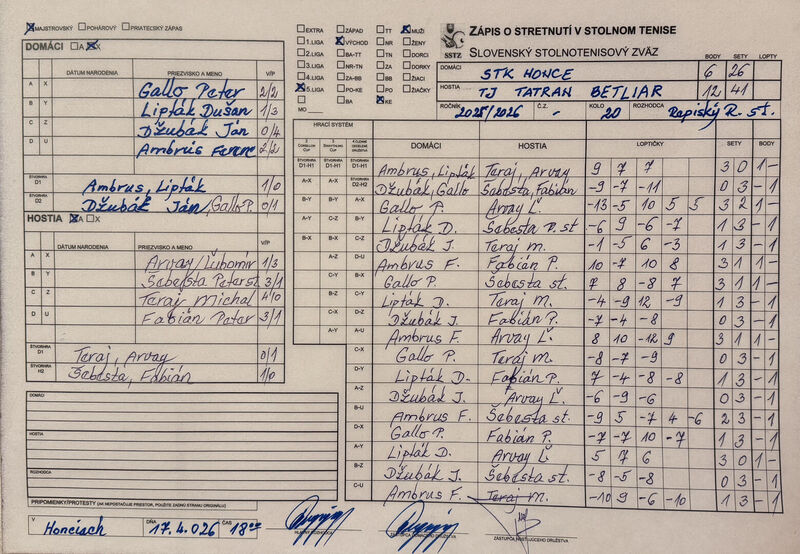 MAJSTROVSKÝ POHÁROVÝ PRIATEĽSKÝ ZÁPAS
DOMÁCI A X
DÁTUM NARODENIA PRIEZVISKO A MENO V/P
A X Gallo Peter 2/2
B Y Lipták Dušan 1/3
C Z Džubák Ján 0/4
D U Ambrus Ferenc 2/2
ŠTVORHRA D1 Ambrus, Lipták 1/0
ŠTVORHRA D2 Džubák Ján, Gallo P. 0/1
HOSTIA A X
DÁTUM NARODENIA PRIEZVISKO A MENO V/P
A X Arvay Ľubomír 1/3
B Y Šebesta Peter st. 3/1
C Z Teraj Michal 4/0
D U Fabián Peter 3/1
ŠTVORHRA D1 Teraj, Arvay 0/1
ŠTVORHRA H2 Šebesta, Fabián 1/0
DOMÁCI
HOSTIA
ROZHODCA
PRIPOMIENKY/PROTESTY (AK NEPOSTAČUJE PRIESTOR, POUŽITE ZADNÚ STRANU ORIGINÁLU)
V Honciach DŇA 17.4.026 ČAS 18°°
HLAVNÝ ROZHODCA
ZÁSTUPCA DOMÁCEHO DRUŽSTVA
ZÁSTUPCA HOSŤUJÚCEHO DRUŽSTVA
EXTRA ZÁPAD TT MUŽI
1.LIGA VÝCHOD NR ŽENY
2.LIGA BA-TT TN DORCI
3.LIGA NR-TN ZA DORKY
4.LIGA ZA-BB BB ŽIACI
5.LIGA PO-KE PO ŽIAČKY
BA KE
MO
SSTZ
ZÁPIS O STRETNUTÍ V STOLNOM TENISE
SLOVENSKÝ STOLNOTENISOVÝ ZVÄZ
BODY SETY LOPTY
DOMÁCI STK HONCE 6 26
HOSTIA TJ TATRAN BETLIAR 12 41
ROČNÍK 2025/2026 Č.Z. - KOLO 20 ROZHODCA Rapiský R. st.
HRACÍ SYSTÉM
DOMÁCI HOSTIA LOPTIČKY SETY BODY
ŠTVORHRA D1-H1 ŠTVORHRA D1-H1 ŠTVORHRA D1-H1 Ambrus, Lipták Teraj, Arvay 9 7 7 3 0 1 -
A-X A-X ŠTVORHRA D2-H2 Džubák, Gallo Šebesta, Fabián -9 -7 -11 0 3 - 1
B-Y B-Y A-X Gallo P. Arvay Ľ. -13 -5 10 5 5 3 2 1 -
ŠTVORHRA A-Y C-Z B-Y Lipták D. Šebesta P. st -6 9 -6 -7 1 3 - 1
B-X B-X C-Z Džubák J. Teraj M. -1 -5 6 -3 1 3 - 1
A-Z D-U Ambrus F. Fabián P. 10 -7 10 8 3 1 1 -
C-Y B-X Gallo P. Šebesta st. 7 8 -8 7 3 1 1 -
B-Z C-Y Lipták D. Teraj M. -4 -9 12 -9 1 3 - 1
C-X D-Z Džubák J. Fabián P. -7 -4 -8 0 3 - 1
A-Y A-U Ambrus F. Arvay Ľ. 8 10 -12 9 3 1 1 -
C-X Gallo P. Teraj M. -8 -7 -9 0 3 - 1
D-Y Lipták D. Fabián P. 7 -4 -8 -8 1 3 - 1
A-Z Džubák J. Arvay Ľ. -6 -9 -6 0 3 - 1
B-U Ambrus F. Šebesta st. -9 5 -7 4 -6 2 3 - 1
D-X Gallo P. Fabián P. -7 -7 10 -7 1 3 - 1
A-Y Lipták D. Arvay Ľ. 5 7 6 3 0 1 -
B-Z Džubák J. Šebesta st. -8 -5 -8 0 3 - 1
C-U Ambrus F. Teraj M. -10 9 -6 -10 1 3 - 1